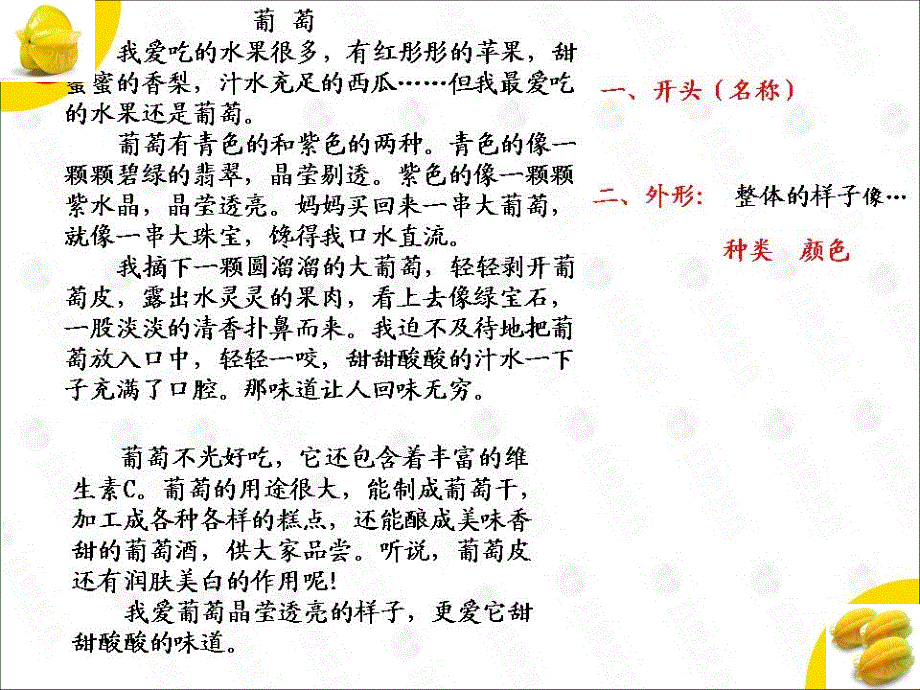 葡 萄
我爱吃的水果很多，有红彤彤的苹果，甜
蜜蜜的香梨，汁水充足的西瓜……但我最爱吃
的水果还是葡萄。
葡萄有青色的和紫色的两种。青色的像一
颗颗碧绿的翡翠，晶莹剔透。紫色的像一颗颗
紫水晶，晶莹透亮。妈妈买回来一串大葡萄，
就像一串大珠宝，馋得我口水直流。
我摘下一颗圆溜溜的大葡萄，轻轻剥开葡
萄皮，露出水灵灵的果肉，看上去像绿宝石，
一股淡淡的清香扑鼻而来。我迫不及待地把葡
萄放入口中，轻轻一咬，甜甜酸酸的汁水一下
子充满了口腔。那味道让人回味无穷。
葡萄不光好吃，它还包含着丰富的维
生素C。葡萄的用途很大，能制成葡萄干，
加工成各种各样的糕点，还能酿成美味香
甜的葡萄酒，供大家品尝。听说，葡萄皮
还有润肤美白的作用呢！
我爱葡萄晶莹透亮的样子，更爱它甜
甜酸酸的味道。
一、开头（名称）
二、外形： 整体的样子像…
种类 颜色